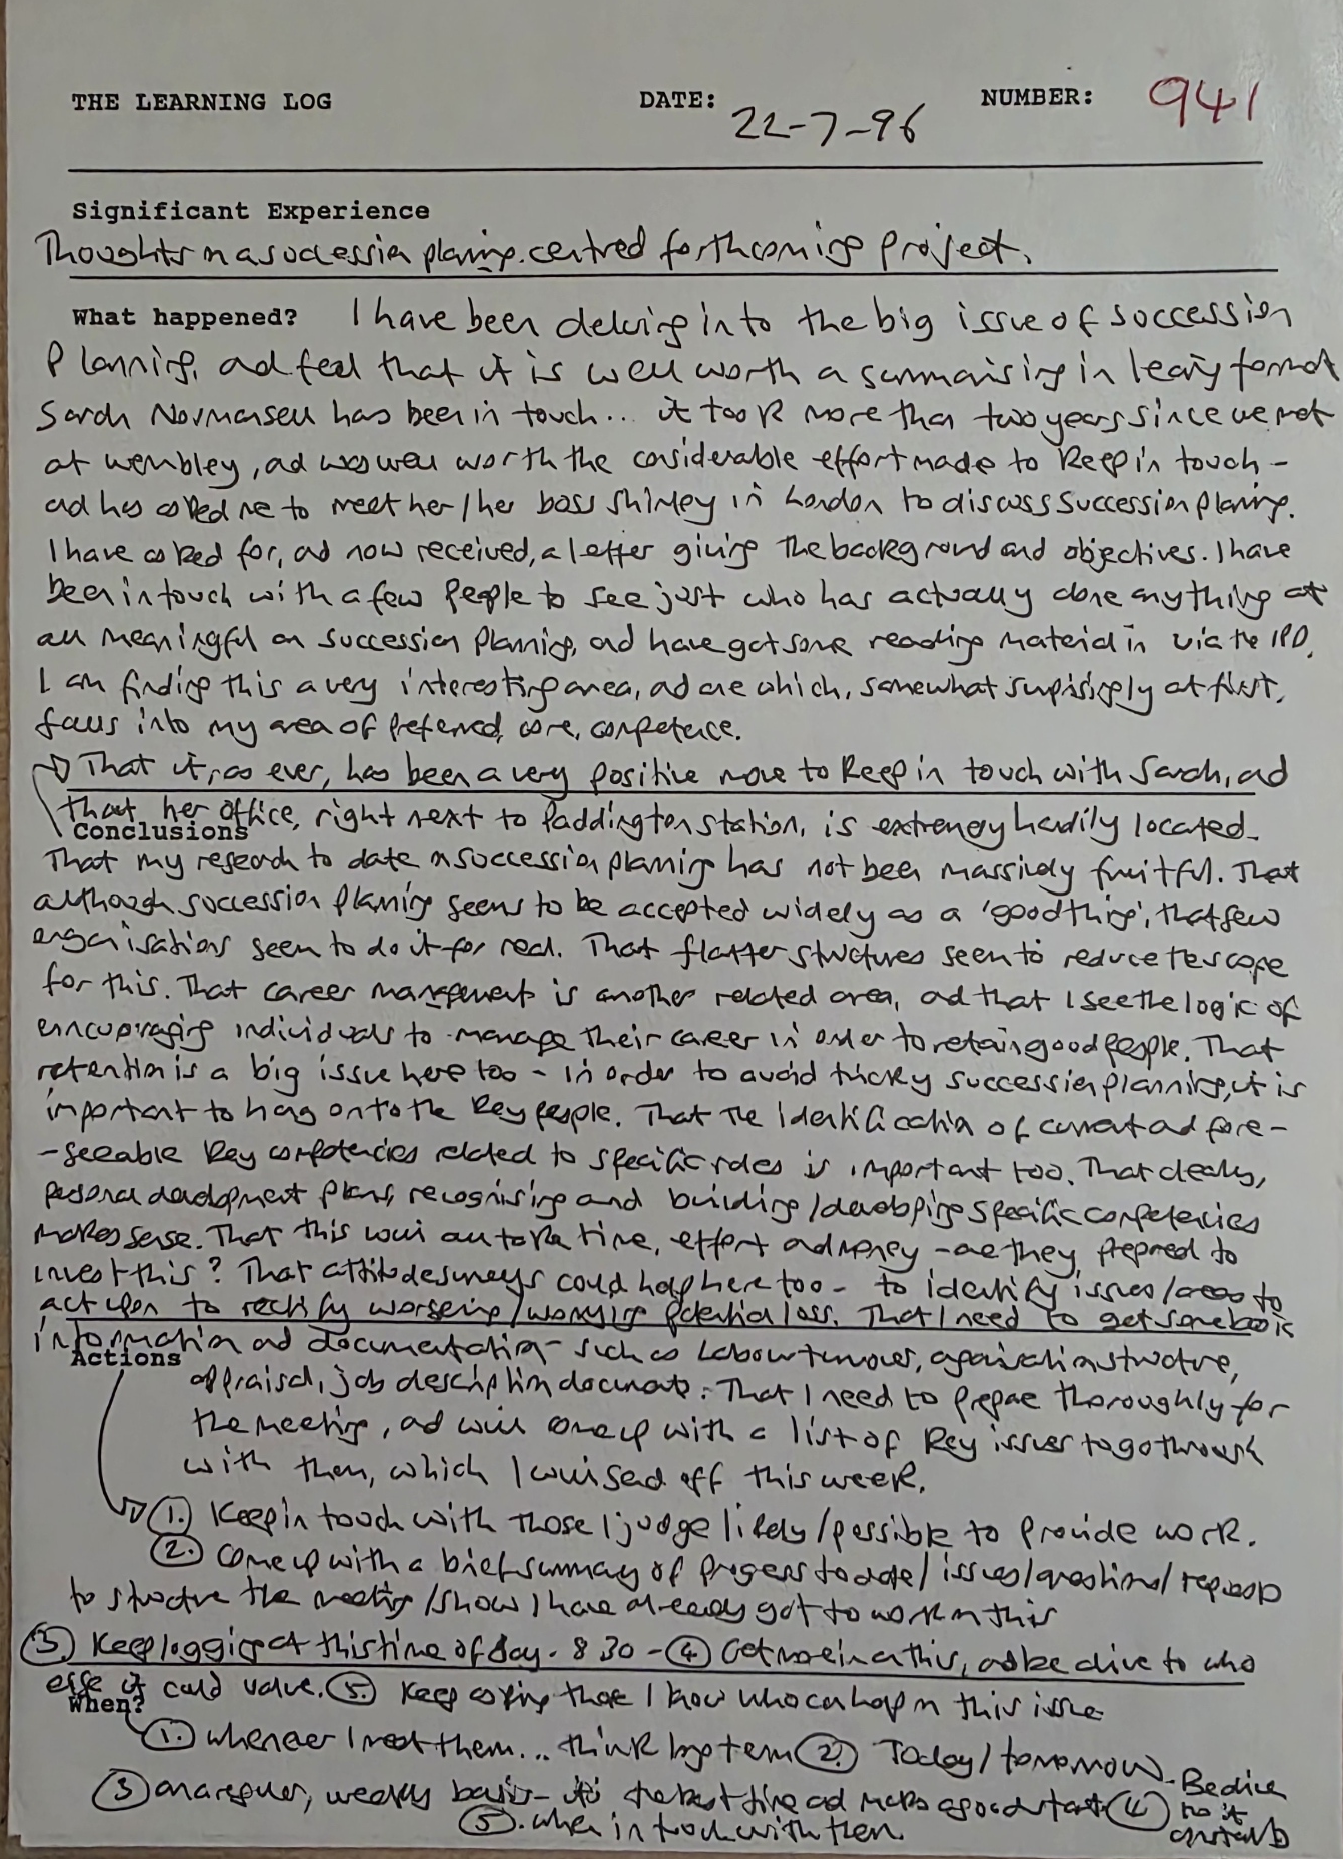 THE LEARNING LOG DATE: 22-7-96 NUMBER: 941
Significant Experience
Thoughts on a succession planning centred forthcoming project.
What happened? I have been delving into the big issue of succession
planning, and feel that it is well worth a summarising in learning format
Sarah has been in touch... it took more than two years since we met
at Wembley, and was well worth the considerable effort made to keep in touch -
and has asked me to meet her/her boss Shirley in London to discuss succession planning.
I have asked for, and now received, a letter giving the background and objectives. I have
been in touch with a few people to see just who has actually done anything at
all meaningful on succession planning, and have got some reading material in via the IPD.
I am finding this a very interesting area, and one which, somewhat surprisingly at first,
falls into my area of preferred, core, competence.
That it, as ever, has been a very positive move to keep in touch with Sarah, and
that her office, right next to Paddington station, is extremely handily located.
Conclusions
That my research to date on succession planning has not been massively fruitful. That
although succession planning seems to be accepted widely as a 'good thing', that few
organisations seem to do it for real. That flatter structures seem to reduce the scope
for this. That career management is another related area, and that I see the logic of
encouraging individuals to manage their career in order to retain good people. That
retention is a big issue here too - in order to avoid tricky succession planning, it is
important to hang onto the key people. That the identification of current and fore-
-seeable key competencies related to specific roles is important too. That clearly,
personal development plans, recognising and building/developing specific competencies
makes sense. That this will all take time, effort and money - are they prepared to
invest this? That attitude surveys could help here too - to identify issues/areas to
act upon to rectify worsening/worrying potential loss. That I need to get some basic
information and documentation - such as labour turnover, organisation structure,
Actions
appraisal, job description documents. That I need to prepare thoroughly for
the meeting, and will come up with a list of key issues to go through
with them, which I will send off this week.
1. Keep in touch with those I judge likely/possible to provide work.
2. Come up with a brief summary of progress to date/issues/questions/requests
to structure the meeting/show I have already got to work on this
3. Keep logging at this time of day. 8 30 - 4 Get more in on this, and be alive to who
else it could value. 5. Keep asking those I know who can help on this issue
When?
1. Whenever I meet them... think long term 2. Today/tomorrow.
3 on a regular, weekly basis - it's the best time and makes a good start 4 Be alive
to it
constantly
5. when in touch with them.